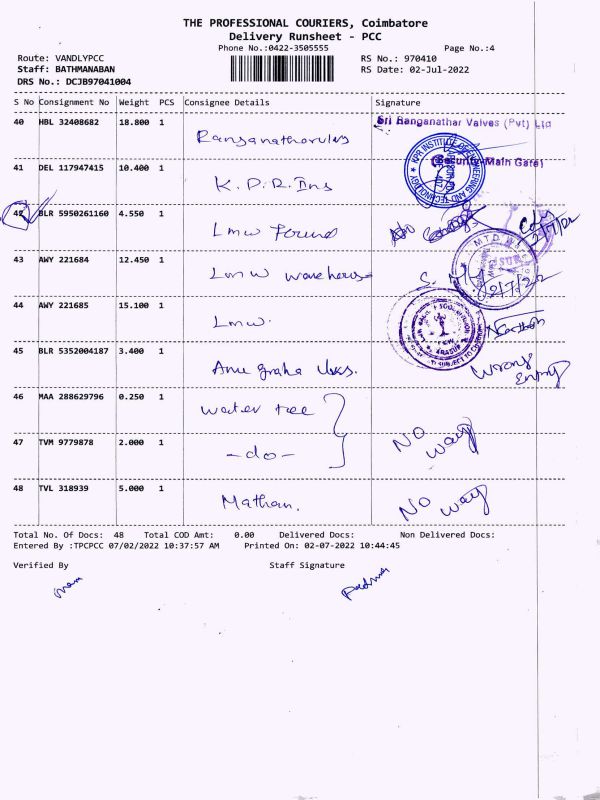 THE PROFESSIONAL COURIERS, Coimbatore
Delivery Runsheet - PCC
Phone No.:0422-3505555
Page No.:4
Route: VANDLYPCC
RS No.: 970410
Staff: BATHMANABAN
RS Date: 02-Jul-2022
DRS No.: DCJB97041004
S No Consignment No Weight PCS Consignee Details Signature
40 HBL 32408682 18.800 1
Sri Ranganathar Valves (Pvt) Ltd
(Security-Main Gate)
41 DEL 117947415 10.400 1 K.P.R. Ins
KPR INSTITUTE OF ENGINEERING AND TECHNOLOGY
42 BLR 5950261160 4.550 1 Lmw Found
2/7/22
43 AWY 221684 12.450 1 Lmw warehouse
02/7/22
44 AWY 221685 15.100 1 Lmw.
45 BLR 5352004187 3.400 1 Anu graha
Wrong
Entry
46 MAA 288629796 0.250 1 water tee
47 TVM 9779878 2.000 1 -do-
NO way
48 TVL 318939 5.000 1 Mathan.
NO way
Total No. Of Docs: 48 Total COD Amt: 0.00 Delivered Docs: Non Delivered Docs:
Entered By :TPCPCC 07/02/2022 10:37:57 AM Printed On: 02-07-2022 10:44:45
Verified By Staff Signature